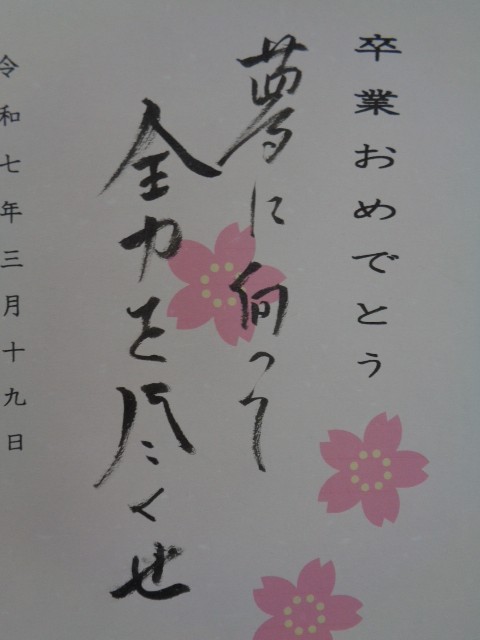 卒業おめでとう
夢に向って
全力を尽くせ
令和七年三月十九日